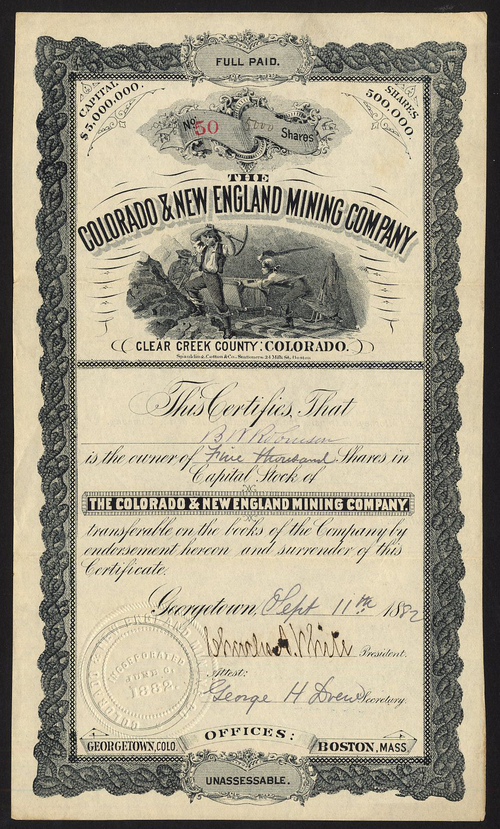 FULL PAID.
CAPITAL $5,000,000.
SHARES 500,000.
No. 50 Shares
THE
COLORADO & NEW ENGLAND MINING COMPANY
CLEAR CREEK COUNTY: COLORADO.
Spaulding, Cotton & Co., Stationers, 24 Milk St., Boston
This Certifies, That
B W Robinson
is the owner of Five thousand Shares in
Capital Stock of
THE COLORADO & NEW ENGLAND MINING COMPANY,
transferable on the books of the Company by
endorsement hereon and surrender of this
Certificate.
Georgetown, Sept 11th 1882
President.
Attest:
George H Drew Secretary.
INCORPORATED
JUNE 9
1882.
OFFICES:
GEORGETOWN, COLO.
BOSTON, MASS.
UNASSESSABLE.